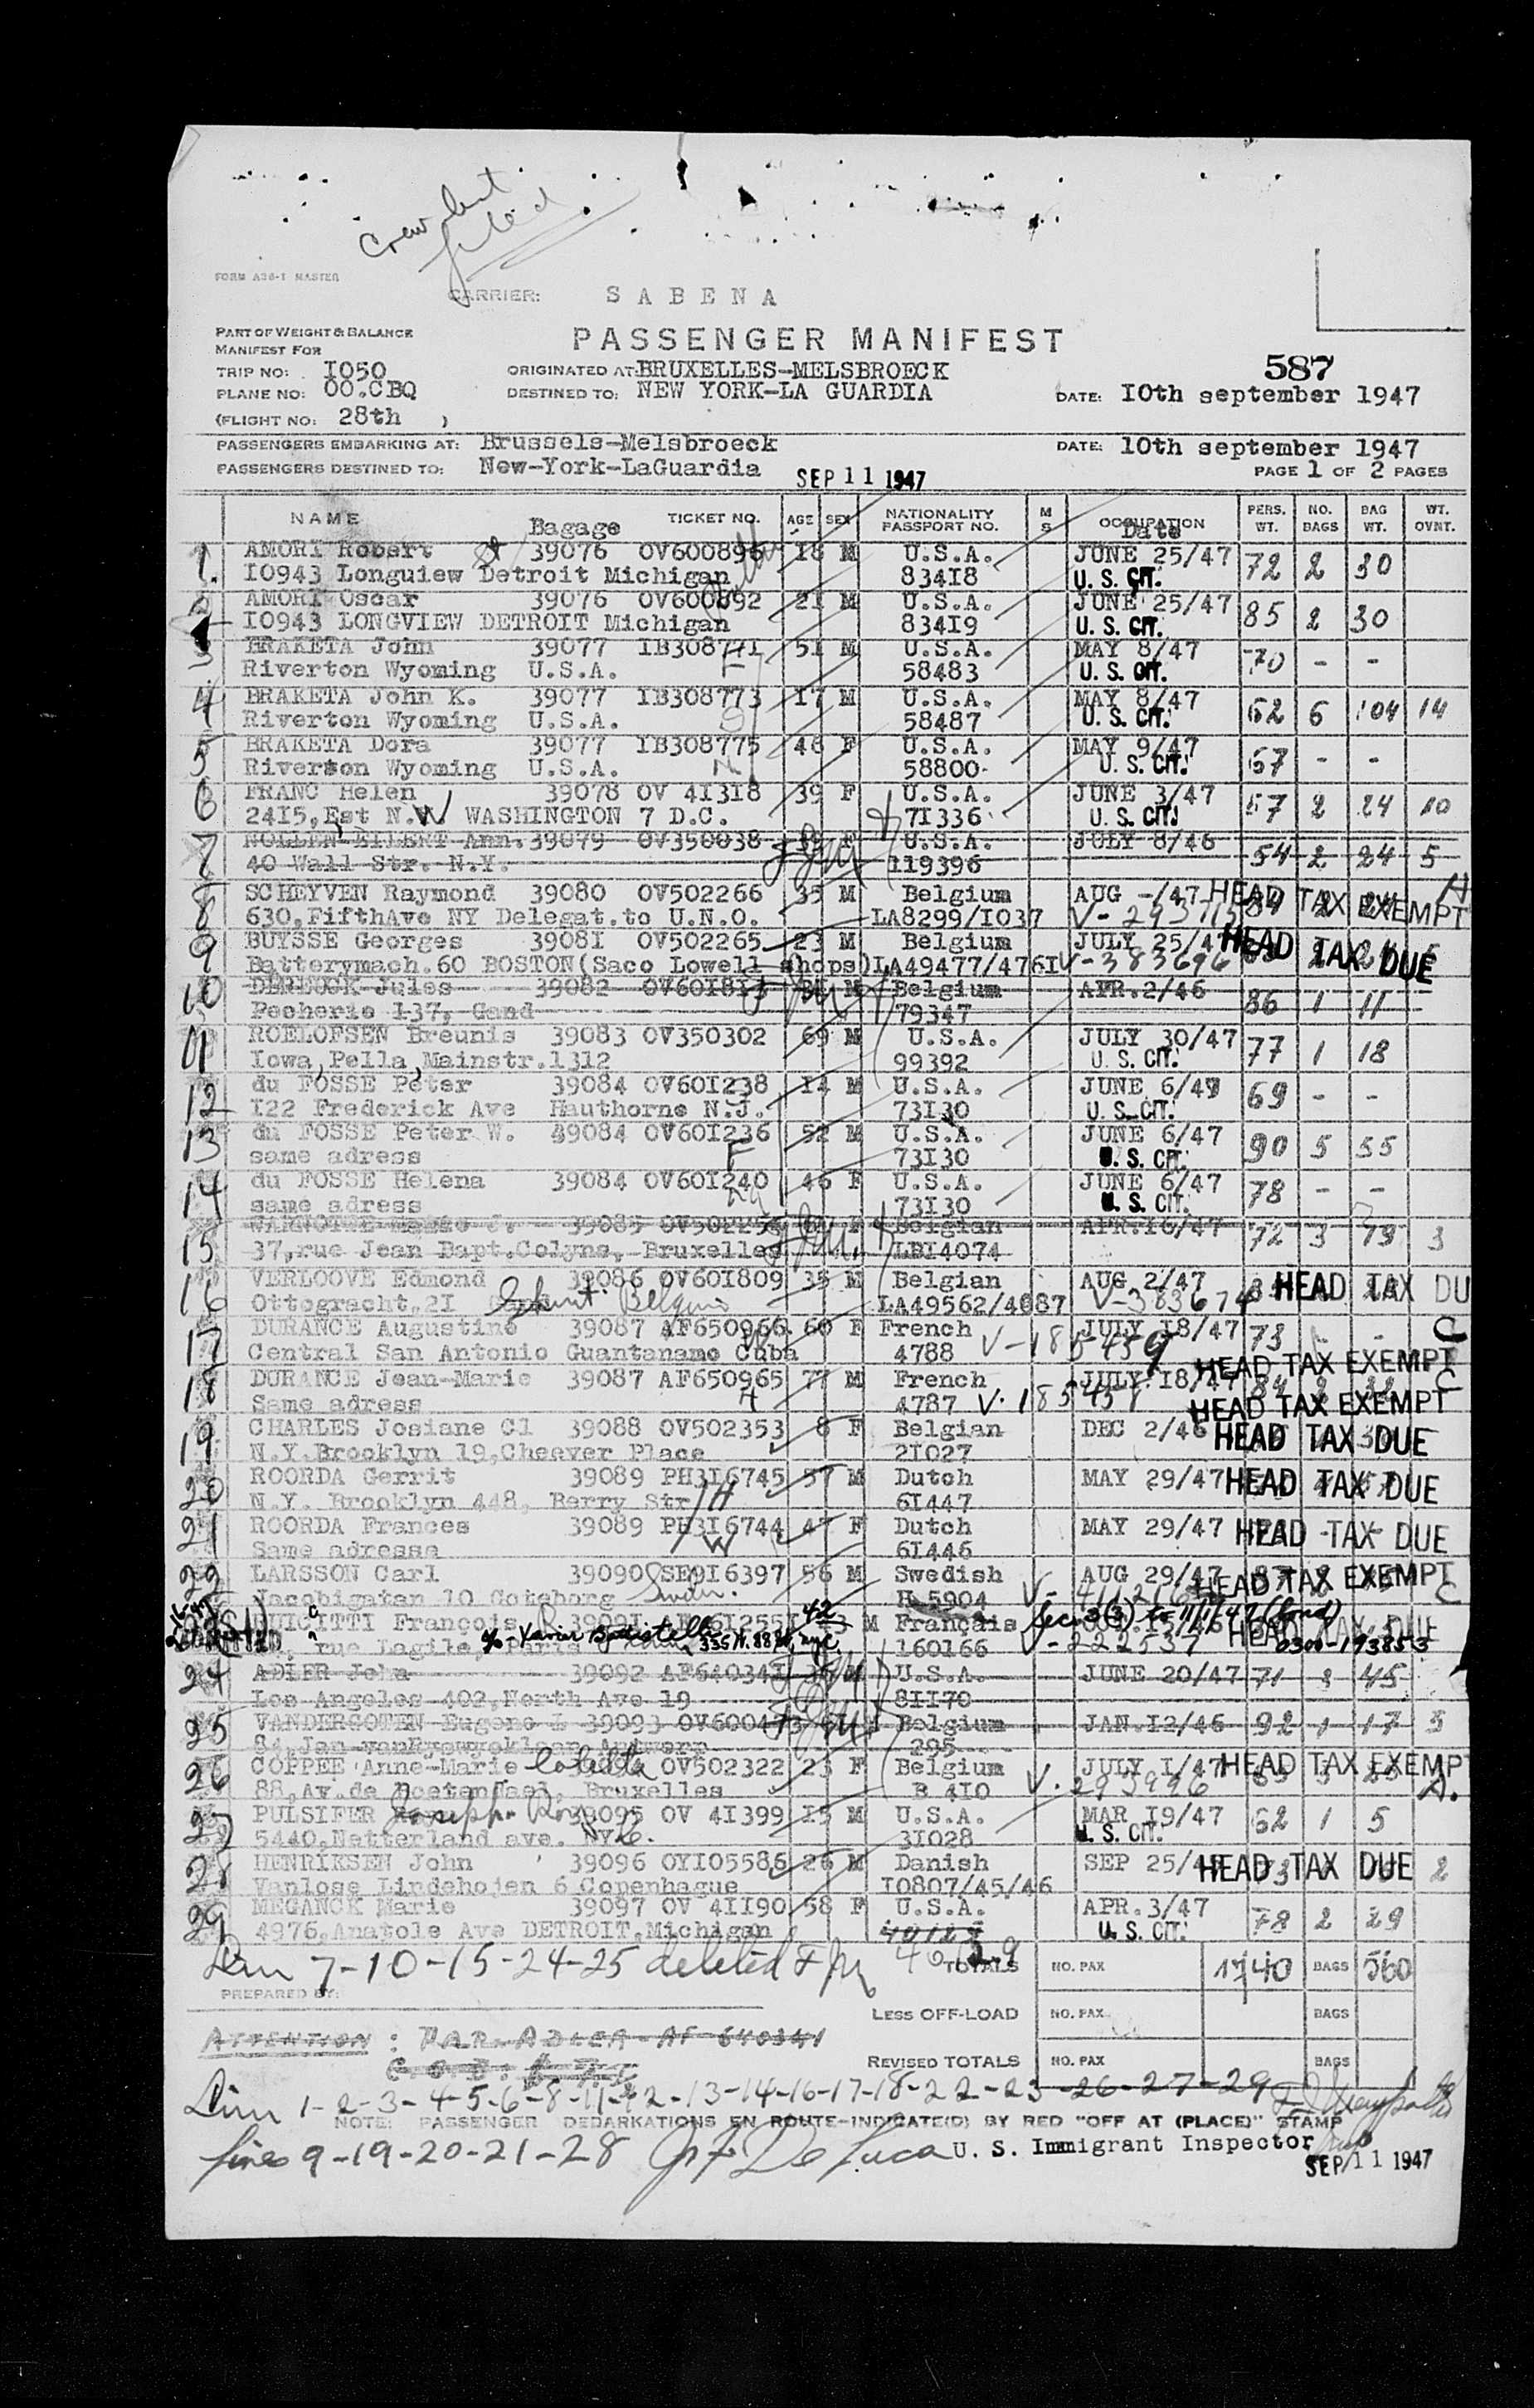 Crew list
filed
FORM A36-I MASTER
CARRIER: SABENA
PART OF WEIGHT & BALANCE
MANIFEST FOR
PASSENGER MANIFEST
587
TRIP NO: I050 ORIGINATED AT: BRUXELLES-MELSBROECK
PLANE NO: OO.CBQ DESTINED TO: NEW YORK-LA GUARDIA DATE: I0th september 1947
(FLIGHT NO: 28th )
PASSENGERS EMBARKING AT: Brussels-Melsbroeck DATE: 10th september 1947
PASSENGERS DESTINED TO: New-York-LaGuardia SEP 11 1947 PAGE 1 OF 2 PAGES
NAME Bagage TICKET NO. AGE SEX NATIONALITY PASSPORT NO. M S OCCUPATION Date PERS. WT. NO. BAGS BAG WT. WT. OVNT.
1. AMORI Robert 39076 OV600896 18 M U.S.A. JUNE 25/47 72 2 30
I0943 Longuiew Detroit Michigan 834I8 U. S. CIT.
2 AMORI Oscar 39076 OV600892 21 M U.S.A. JUNE 25/47 85 2 30
I0943 LONGVIEW DETROIT Michigan 834I9 U. S. CIT.
3 BRAKETA John 39077 IB308771 51 M U.S.A. MAY 8/47 70 - -
Riverton Wyoming U.S.A. F 58483 U. S. CIT.
4 BRAKETA John K. 39077 IB308773 I7 M U.S.A. MAY 8/47 62 6 104 14
Riverton Wyoming U.S.A. S 58487 U. S. CIT.
5 BRAKETA Dora 39077 IB308775 48 F U.S.A. MAY 9/47 67 - -
Riverson Wyoming U.S.A. 58800 U. S. CIT.
6 FRANC Helen 39078 OV 4I3I8 39 F U.S.A. JUNE 3/47 57 2 24 10
24I5,Est N.W WASHINGTON 7 D.C. 7I336 U. S. CIT.
7 Ann. 39079 OV350038 F U.S.A. JULY 8/46 54 2 24 5
40 Wall Str. N.Y. 119396
8 SCHEYVEN Raymond 39080 OV502266 35 M Belgium AUG -/47 HEAD TAX EXEMPT
630,FifthAve NY Delegat.to U.N.O. LA8299/I037
9 BUYSSE Georges 3908I OV502265 23 M Belgium JULY 25/47 HEAD TAX DUE
Batterymach.60 BOSTON(Saco Lowell shops)LA49477/476I V-383696
10 Jules 39082 M Belgium APR.2/46 86 1 11
Pecherie 137, Gand 79347
11 ROELOFSEN Breunis 39083 OV350302 69 M U.S.A. JULY 30/47 77 1 18
Iowa,Pella,Mainstr.1312 99392 U. S. CIT.
12 du FOSSE Peter 39084 OV60I238 I4 M U.S.A. JUNE 6/47 69 - -
I22 Frederick Ave Hauthorne N.J. 73I30 U. S. CIT.
13 du FOSSE Peter W. 39084 OV60I236 52 M U.S.A. JUNE 6/47 90 5 55
same adress F 73I30 U. S. CIT.
14 du FOSSE Helena 39084 OV60I240 46 F U.S.A. JUNE 6/47 78 - -
same adress 73I30 U. S. CIT.
15 39085 F Belgian APR.16/47 72 3 79 3
37,rue Jean Bapt.Colyns, Bruxelles LBI4074
16 VERLOOVE Edmond 39086 OV60I809 35 M Belgian AUG 2/47 HEAD TAX DU
Ottogracht,2I Belgium LA49562/4887 V-383674
17 DURANCE Augustine 39087 AF650966 60 F French JULY I8/47 73 - - C
Central San Antonio Guantanamo Cuba 4788 V-185459 HEAD TAX EXEMPT
18 DURANCE Jean-Marie 39087 AF650965 77 M French JULY I8/47 C
Same adress H 4787 HEAD TAX EXEMPT
19 CHARLES Josiane Cl 39088 OV502353 8 F Belgian DEC 2/46 HEAD TAX DUE
N.Y.Brooklyn 19,Cheever Place 2I027
20 ROORDA Gerrit 39089 PH3I6745 57 M Dutch MAY 29/47 HEAD TAX DUE
N.Y. Brooklyn 448, Berry Str H 6I447
21 ROORDA Frances 39089 PH3I6744 47 F Dutch MAY 29/47 HEAD TAX DUE
Same adresse W 6I446
22 LARSSON Carl 39090 SE9I6397 56 M Swedish AUG 29/47 HEAD TAX EXEMPT
Jacobigatan 10 Goteborg H 5904 C
François 42 M Français HEAD TAX DUE
rue 335 W. 88 160166 V-222537 0300-193853
24 ADLER John 39092 AF64034I M U.S.A. JUNE 20/47 71 3 45
Los Angeles 402,North Ave 19 8II70
25 VANDERGOTEN Eugene L 39093 OV600473 Belgium JAN.I2/46 92 1 17 3
Antwerp 295
26 COPPEE Anne-Marie OV502322 23 F Belgium JULY I/47 HEAD TAX EXEMPT
88,Av.de Bruxelles B 4IO V. 293996 A.
27 PULSIFER Joseph 39095 OV 4I399 I5 M U.S.A. MAR I9/47 62 1 5
5440,Netterland ave. NYC. 3I028 U. S. CIT.
28 HENRIKSEN John 39096 OYI05586 26 M Danish SEP 25/4 HEAD TAX DUE 2
Vanlose Lindehojen 6 Copenhague I0807/45/46
29 MEGANCK Marie 39097 OV 4II90 58 F U.S.A. APR.3/47 78 2 29
4976,Anatole Ave DETROIT,Michigan U. S. CIT.
7-10-15-24-25 deleted
TOTALS NO. PAX 1740 BAGS 560
PREPARED BY:
LESS OFF-LOAD NO. PAX BAGS
ATTENTION : PAR. ADLER - AF 640341
REVISED TOTALS NO. PAX BAGS
1-2-3-4-5-6-8-11-12-13-14-16-17-18-22-23-26-27-29
NOTE: PASSENGER DEBARKATIONS EN ROUTE-INDICATE(D) BY RED "OFF AT (PLACE)" STAMP
lines 9-19-20-21-28 De Luca U. S. Immigrant Inspector
SEP 11 1947